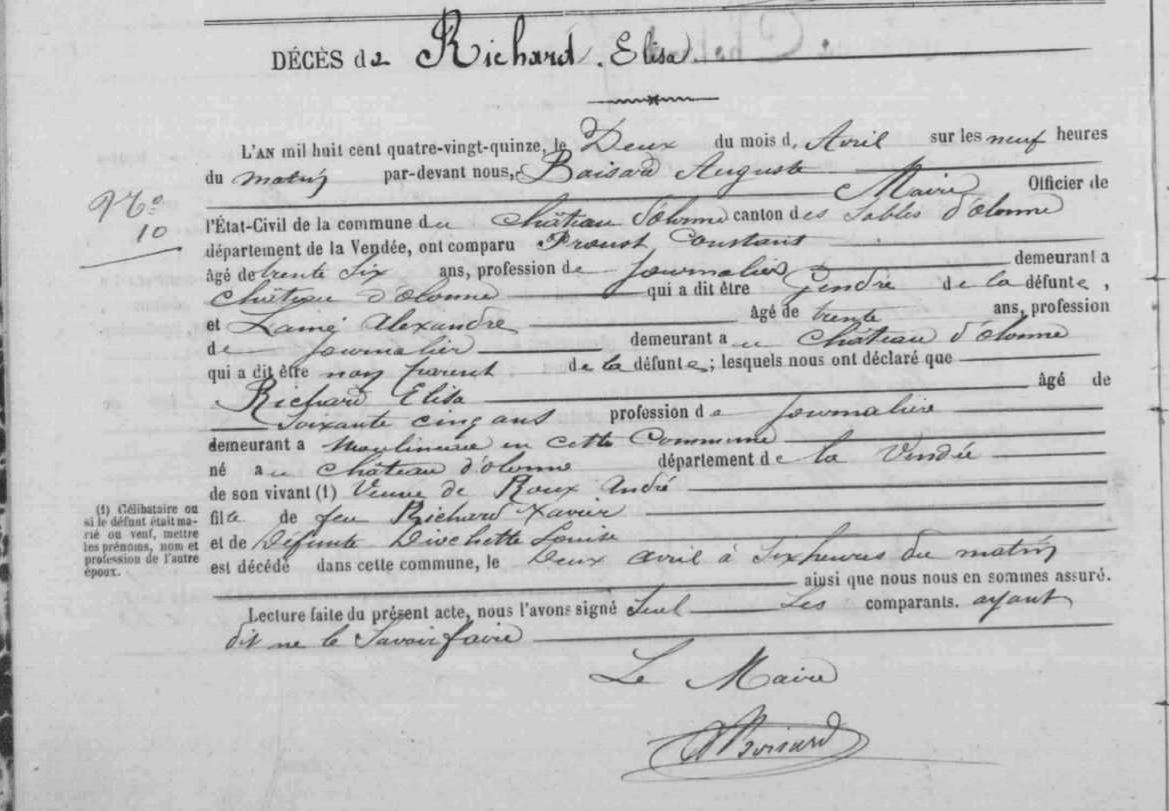 DÉCÈS de Richard Elisa
L'AN mil huit cent quatre-vingt-quinze, le Deux du mois d' Avril sur les neuf heures
du matin par-devant nous, Boisard Auguste
Maire Officier de
No
10
l'État-Civil de la commune du château d'olonne canton des Sables d'olonne
département de la Vendée, ont comparu Proust Constant
âgé de trente Six ans, profession de Journalier demeurant a
château d'olonne qui a dit être Gendre de la défunte,
et Lainé Alexandre âgé de trente ans, profession
de Journalier demeurant au château d'olonne
qui a dit être non parent de la défunte; lesquels nous ont déclaré que
Richard Elisa âgé de
Soixante cinq ans profession de Journalière
demeurant a en cette Commune
né au château d'olonne département de la Vendée
de son vivant (1) Veuve de Roux André
(1) Célibataire ou
si le défunt était ma-
rié ou veuf, mettre
les prénoms, nom et
profession de l'autre
époux.
fille de feu Richard Xavier
et de Défunte Louise
est décédé dans cette commune, le Deux avril à Six heures du matin
ainsi que nous nous en sommes assuré.
Lecture faite du présent acte, nous l'avons signé Seul Les comparants. ayant
dit ne le Savoir faire
Le Maire
A Boisard